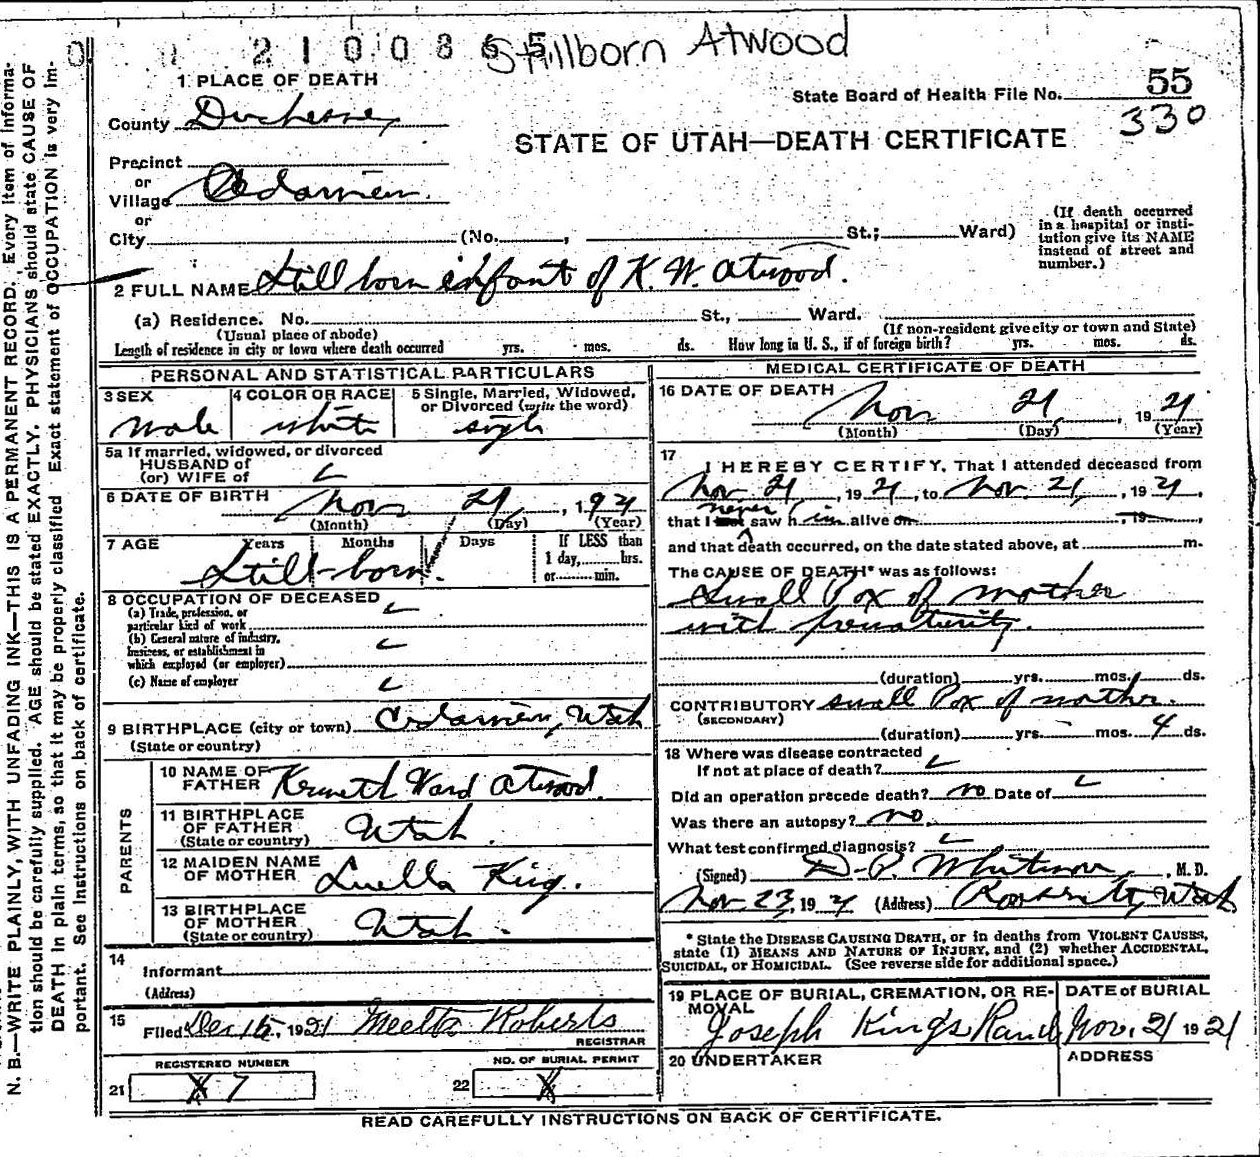 0 2 1 0 0 8 6 5
Stillborn Atwood
1 PLACE OF DEATH
County Duchesne
State Board of Health File No. 55
330
STATE OF UTAH—DEATH CERTIFICATE
Precinct
or
Village
or
City (No. , St.; Ward)
(If death occurred in a hospital or insti-
tution give its NAME
instead of street and
number.)
2 FULL NAME Still born infant of K. W. Atwood.
(a) Residence. No. St., Ward.
(Usual place of abode) (If non-resident give city or town and State)
Length of residence in city or town where death occurred yrs. mos. ds. How long in U. S., if of foreign birth? yrs. mos. ds.
PERSONAL AND STATISTICAL PARTICULARS
3 SEX 4 COLOR OR RACE 5 Single, Married, Widowed,
or Divorced (write the word)
Male white single
5a If married, widowed, or divorced
HUSBAND of
(or) WIFE of
6 DATE OF BIRTH Nov 21, 1921
(Month) (Day) (Year)
7 AGE Years Months Days If LESS than
1 day, hrs.
or min.
Still-born.
8 OCCUPATION OF DECEASED
(a) Trade, profession, or
particular kind of work
(b) General nature of industry,
business, or establishment in
which employed (or employer)
(c) Name of employer
9 BIRTHPLACE (city or town) Utah
(State or country)
PARENTS
10 NAME OF
FATHER Kenneth Ward Atwood.
11 BIRTHPLACE
OF FATHER
(State or country) Utah.
12 MAIDEN NAME
OF MOTHER Luella King.
13 BIRTHPLACE
OF MOTHER
(State or country) Utah.
14
Informant
(Address)
15
Filed Dec 15, 1921 Roberts
REGISTRAR
REGISTERED NUMBER
21 X 7
NO. OF BURIAL PERMIT
22 X
MEDICAL CERTIFICATE OF DEATH
16 DATE OF DEATH
Nov 21, 1921
(Month) (Day) (Year)
17
I HEREBY CERTIFY, That I attended deceased from
Nov. 21, 1921, to Nov. 21, 1921,
that I never saw him alive on , 19 ,
and that death occurred, on the date stated above, at m.
The CAUSE OF DEATH* was as follows:
Small Pox of mother
with prematurity.
(duration) yrs. mos. ds.
CONTRIBUTORY small Pox of mother.
(SECONDARY)
(duration) yrs. – mos. 4 ds.
18 Where was disease contracted
If not at place of death?
Did an operation precede death? no Date of
Was there an autopsy? no.
What test confirmed diagnosis?
(Signed) , M. D.
Nov. 23, 1921 (Address) Roosevelt, Utah
* State the DISEASE CAUSING DEATH, or in deaths from VIOLENT CAUSES,
state (1) MEANS AND NATURE OF INJURY, and (2) whether ACCIDENTAL,
SUICIDAL, OR HOMICIDAL. (See reverse side for additional space.)
19 PLACE OF BURIAL, CREMATION, OR RE-
MOVAL
Joseph King's Ranch
DATE of BURIAL
Nov. 21 1921
20 UNDERTAKER
ADDRESS
READ CAREFULLY INSTRUCTIONS ON BACK OF CERTIFICATE.
N. B.—WRITE PLAINLY, WITH UNFADING INK—THIS IS A PERMANENT RECORD. Every item of informa-
tion should be carefully supplied. AGE should be stated EXACTLY. PHYSICIANS should state CAUSE OF
DEATH in plain terms, so that it may be properly classified. Exact statement of OCCUPATION is very im-
portant. See instructions on back of certificate.